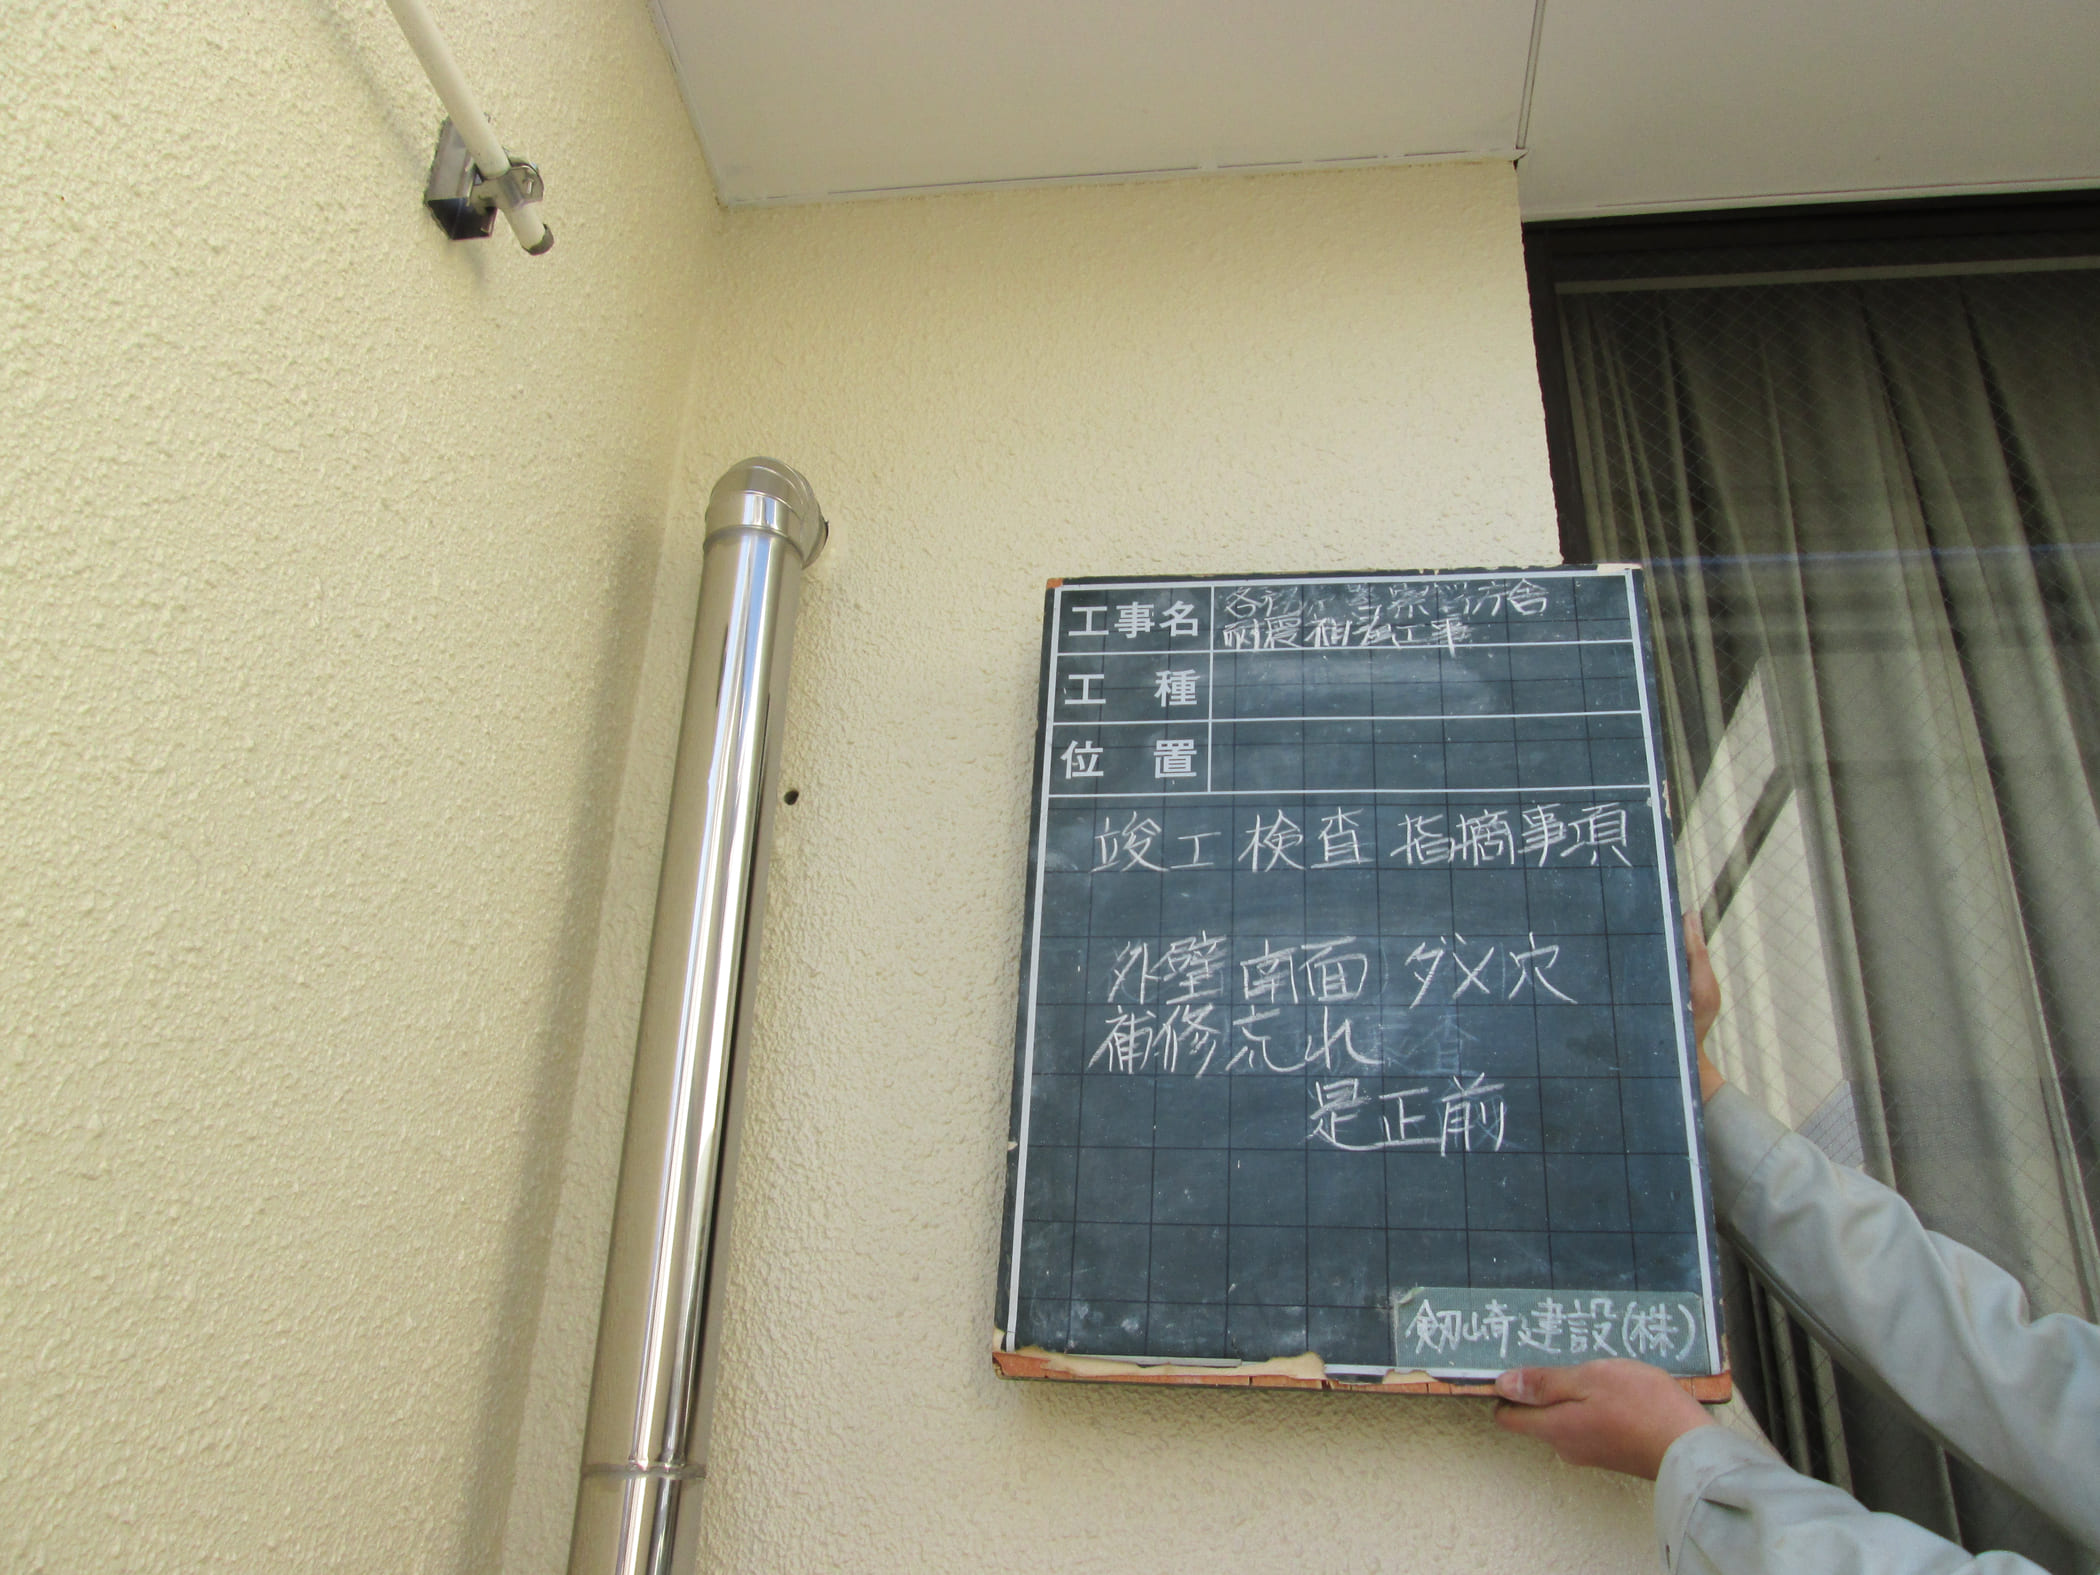 工事名 警察署庁舎
耐震補強工事
工種
位置
竣工検査 指摘事項
外壁南面 ダメ穴
補修忘れ
是正前
剱崎建設(株)